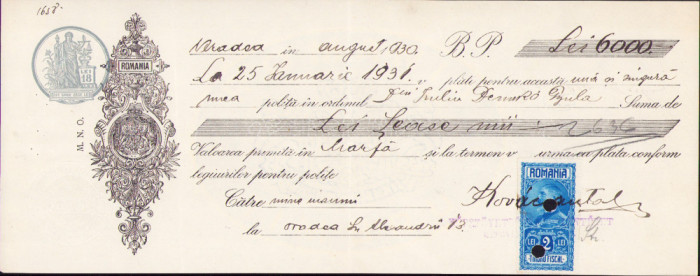 1658
Oradea în august 1930 B. P. Lei 6000.-
La 25 Ianuarie 1931. v plăti pentru aceasta una și singură
mea poliță în ordinul Dlui Iuliu Gyula Suma de
Lei Șease mii
Valoarea primită în Marfă și la termen v urma ca plata conform
legiuirilor pentru polițe
Către mine însumi
la Oradea Alexandri 13
ROMANIA
LEI 18
M. N. O.
ROMANIA
LEI 2 LEI
TIMBRU FISCAL